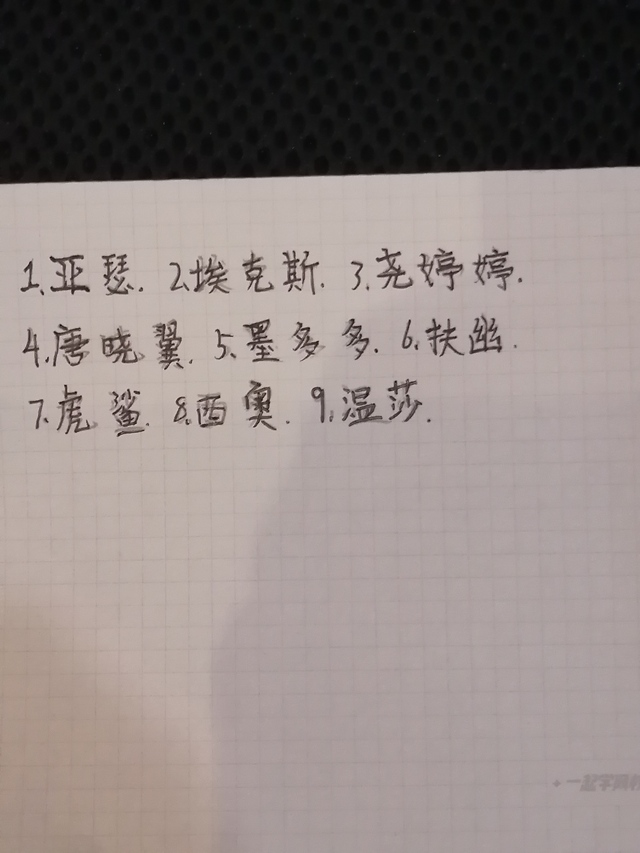 1.亚瑟. 2.埃克斯. 3.尧婷婷.
4.唐晓翼. 5.墨多多. 6.扶幽.
7.虎鲨. 8.西奥. 9.温莎.